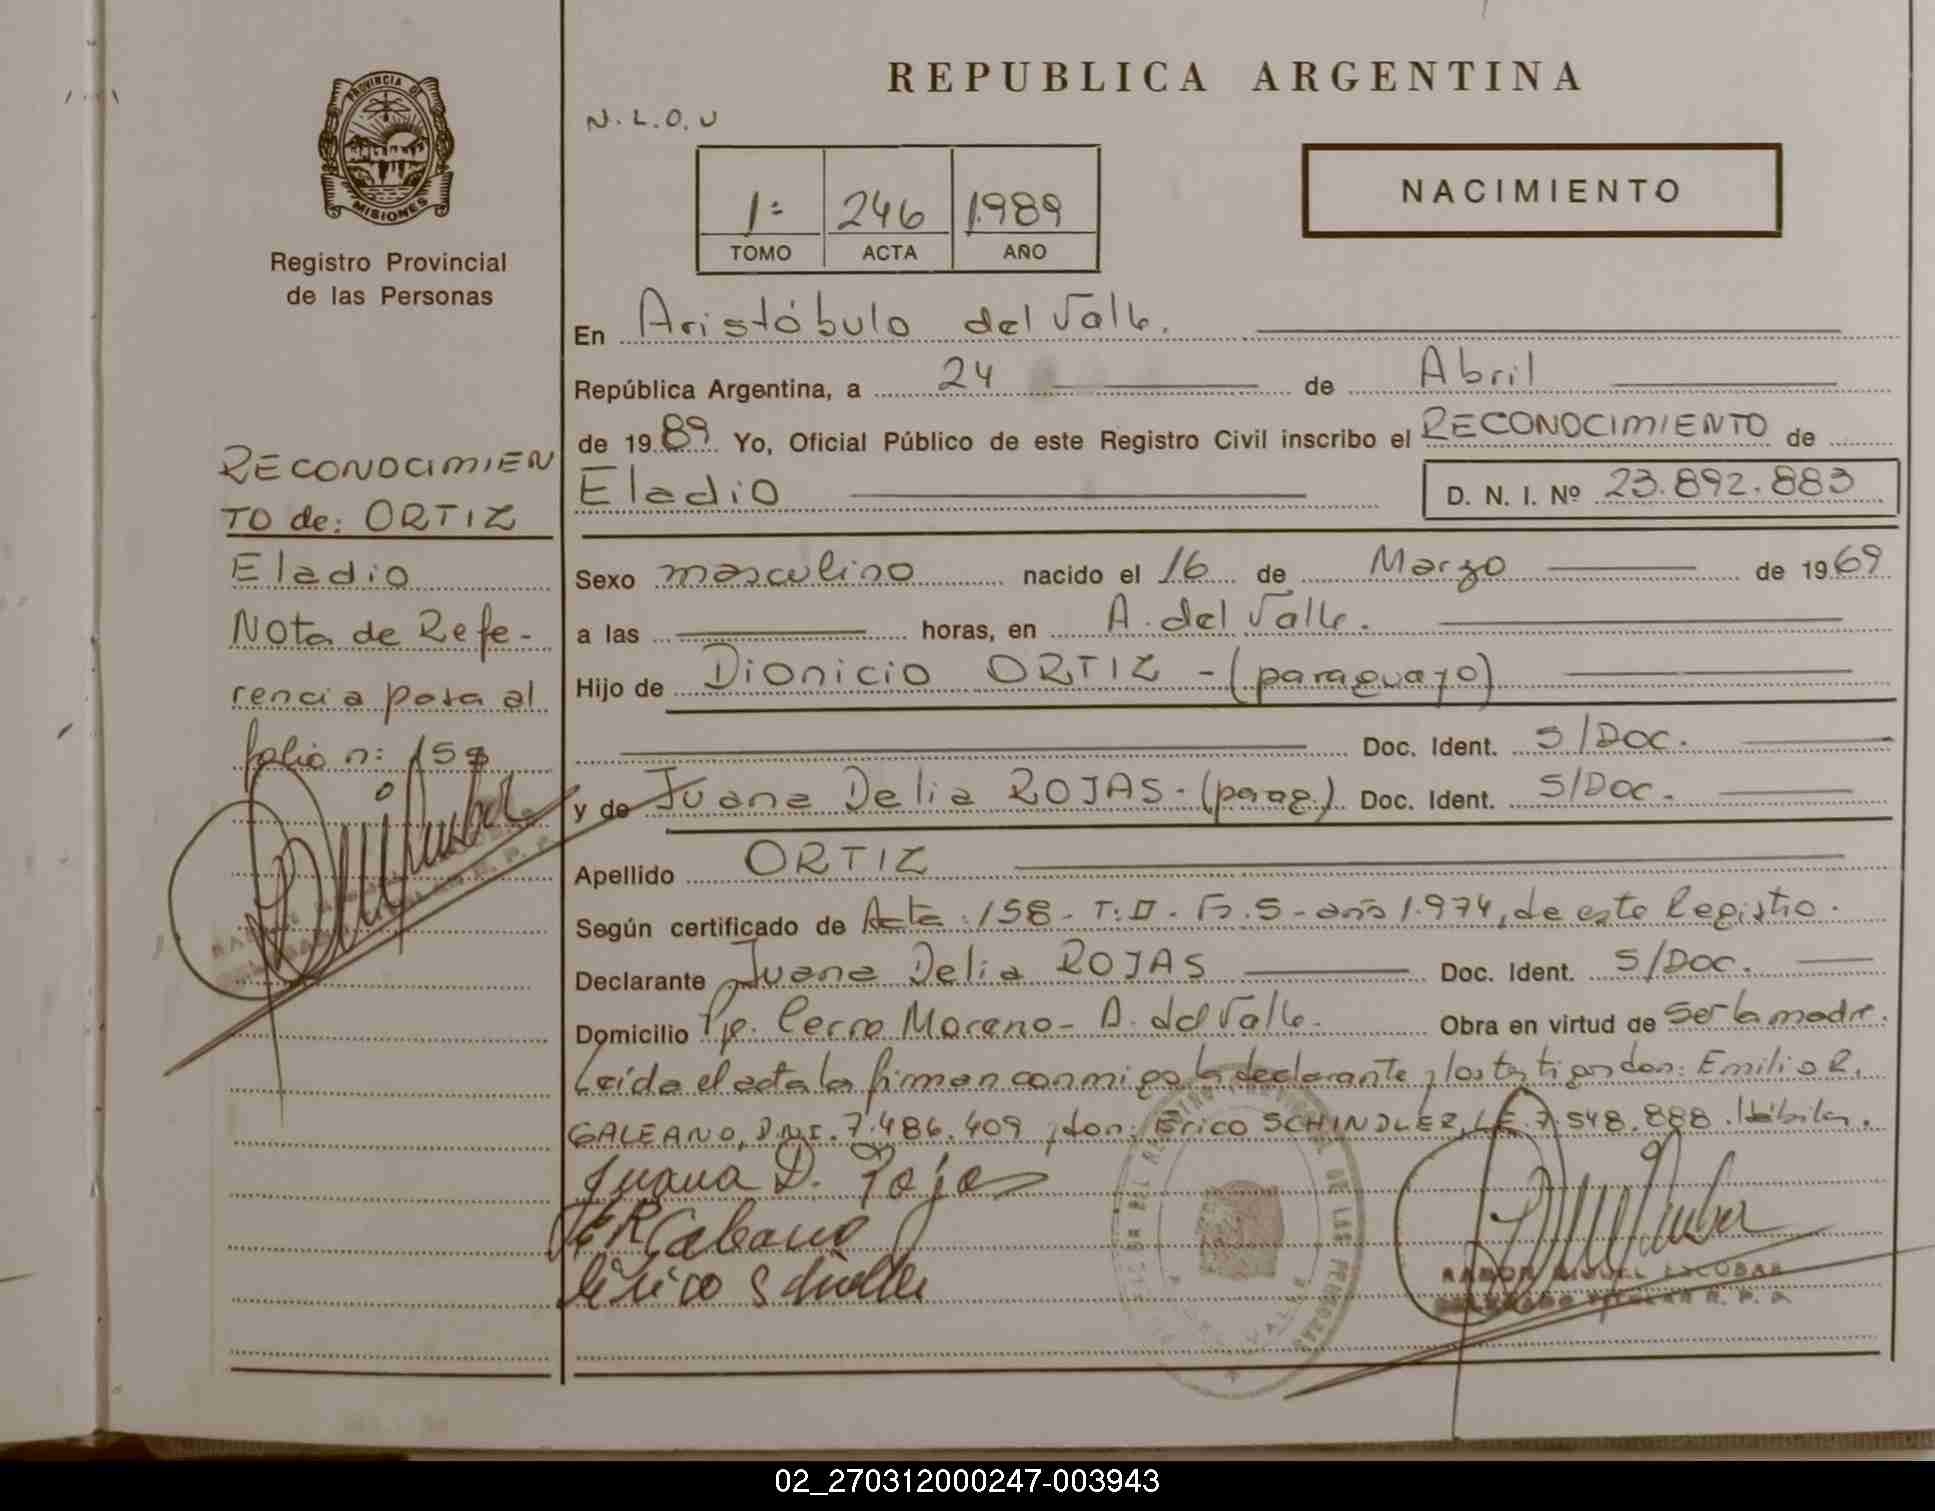 PROVINCIA DE
MISIONES
Registro Provincial
de las Personas
RECONOCIMIEN
TO de: ORTIZ
Eladio
Nota de Refe-
rencia pasa al
folio n: 159
REPUBLICA ARGENTINA
N.L.O.U
NACIMIENTO
1º 246 1.989
TOMO ACTA AÑO
En Aristóbulo del Valle.
República Argentina, a 24 de Abril
de 19 89 Yo, Oficial Público de este Registro Civil inscribo el RECONOCIMIENTO de
Eladio D. N. I. Nº 23.892.883
Sexo masculino nacido el 16 de Marzo de 19 69
a las horas, en A. del Valle.
Hijo de Dionicio ORTIZ - (paraguayo)
Doc. Ident. S/Doc.
y de Juana Delia ROJAS - (parag.) Doc. Ident. S/Doc.
Apellido ORTIZ
Según certificado de Acta: 158 - T: II - F. 5 - año 1.974, de este Registro.
Declarante Juana Delia ROJAS Doc. Ident. S/Doc.
Domicilio Pje. Cerro Moreno - A. del Valle. Obra en virtud de ser la madre.
Leída el acta la firman conmigo la declarante y los testigos don: Emilio R.
GALEANO, DNI. 7.486.409 y don: Erico SCHINDLER, LE. 7.548.888. Hábiles.
Juana D. Rojas
E R Galeano
Erico Schindler
RAMON MIGUEL ESCOBAR
DELEGADO TITULAR R. P. P.
02_270312000247-003943